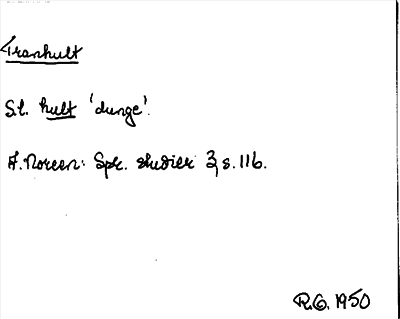 Tranhult
S.l. hult 'dunge'.
A. Noreen: Spr. studier 3, s. 116.
R.G. 1950